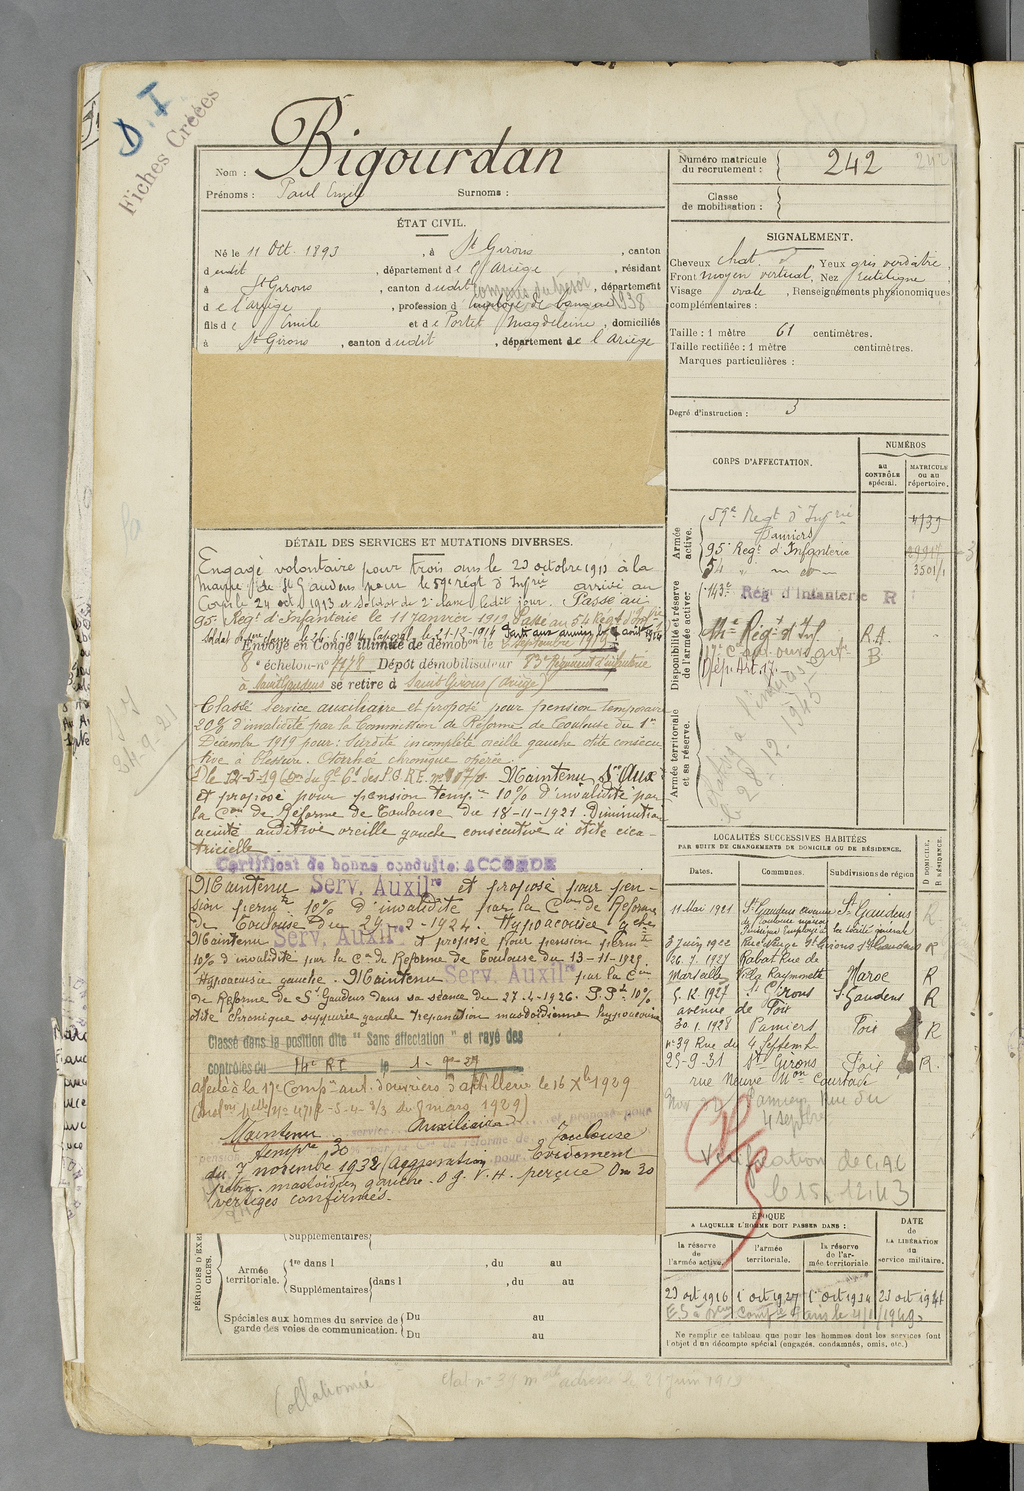 D.I
Fiches Créées
Nom : Bigourdan
Prénoms : Paul Emile Surnoms :
Numéro matricule du recrutement : 242 242
Classe de mobilisation :
ÉTAT CIVIL.
Né le 11 Oct. 1893, à St Girons, canton
dudit, département de l'Ariège, résidant
à St Girons, canton dudit, département
de l'ariège, profession d'employé de banque 1938
fils de Emile et de Portet Magdeleine, domiciliés
à St Girons, canton dudit, département de l'Ariège
SIGNALEMENT.
Cheveux chat. , Yeux gris verdâtre,
Front moyen vertical, Nez rectiligne,
Visage ovale, Renseignements physionomiques
complémentaires :
Taille : 1 mètre 61 centimètres.
Taille rectifiée : 1 mètre centimètres.
Marques particulières :
Degré d'instruction : 3
CORPS D'AFFECTATION.
NUMÉROS
au CONTRÔLE spécial.
MATRICULE ou au répertoire.
Armée active.
59e Regt d'Infrie 4739
Pamiers
95e Regt d'Infanterie
54 " — " — 3501/1
Disponibilité et réserve de l'armée active.
143e Rég. d'Infanterie R
14e Regt d'Inf. R.A.
17e Cie aut. ouv. art. B
Dép. Art. 17.
Armée territoriale et sa réserve.
28.12.1945
DÉTAIL DES SERVICES ET MUTATIONS DIVERSES.
Engagé volontaire pour trois ans le 23 octobre 1913 à la
mairie de St Gaudens pour le 59e régt d'Infrie arrivé au
Corps le 24 oct 1913 et soldat de 2e classe ledit jour. Passé au
95e Regt d'Infanterie le 11 Janvier 1919. Passé au 54 Regt d'Infrie
Soldat de 1ère classe le 26.6.1914 Caporal le 21-12-1914 Parti aux armées le août 1914
Envoyé en Congé illimité de démobon le 2 septembre 1919
8e échelon no 7478 Dépôt démobilisateur 83e Régiment d'infanterie
à Saint Gaudens se retire à Saint Girons (Ariège)
Classé service auxiliaire et proposé pour pension temporaire
20% d'invalidité par la Commission de Réforme de Toulouse du 1er
Décembre 1919 pour : Surdité incomplète oreille gauche otite consécu
tive à blessure. Otorrhée chronique opérée.
Maintenu Sce Auxe
et proposé pour pension tempre 10% d'invalidité par
la Con de Réforme de Toulouse du 18-11-1921. Diminution
acuité auditive oreille gauche consécutive à otite cica-
tricielle
Certificat de bonne conduite: ACCORDÉ
Maintenu Serv. Auxilre et proposé pour pen-
sion permte 10% d'invalidité par la Con de Réforme
de Toulouse du 29-2-1924. Hypoacousie gauche
Maintenu Serv. Auxilre et proposé pour pension permte
10% d'invalidité par la Con de Réforme de Toulouse du 13-11-1925.
Hypoacousie gauche. Maintenu Serv. Auxilre par la Con
de Réforme de St Gaudens dans sa séance du 27-4-1926. P.Pte 10%
otite chronique suppurée gauche trépanation mastoïdienne hypoacousie
Classé dans la position dite "Sans affectation" et rayé des
contrôles du 14e RI le
affecté à la 17e Compie aut. d'ouvriers d'artillerie le 16 Xbre 1929
Maintenu service Auxiliaire et proposé pour
pension tempre 30 Toulouse
du 7 novembre 1932 Aggravation pour Evidement
pétro-mastoïdien gauche. O.g. V.H. perçue 0m20
vertiges confirmés.
LOCALITÉS SUCCESSIVES HABITÉES
PAR SUITE DE CHANGEMENTS DE DOMICILE OU DE RÉSIDENCE.
Dates. Communes. Subdivisions de région D DOMICILE, R RÉSIDENCE.
11 Mai 1921 St Gaudens avenue de Toulouse St Gaudens R
3 Juin 1922 St Girons St Gaudens R
26.7.1927 Rabat Rue de
Marseille Villa Raymonette Maroc R
5.12.1927 St Girons St Gaudens R
avenue de Foix
30.1.1928 Pamiers Foix R
no 39 Rue du 4 Septemb.
25-9-31 St Girons Foix R.
rue Neuve Courtade
Pamiers Rue du
4 septbre
Vérification de C.A.C
le 15.12.43
ÉPOQUE
A LAQUELLE L'HOMME DOIT PASSER DANS :
DATE de LA LIBÉRATION du service militaire.
la réserve de l'armée active.
l'armée territoriale.
la réserve de l'armée territoriale.
23 oct 1916 1 oct 1927 1 oct 1934 23 oct 1941
Ne remplir ce tableau que pour les hommes dont les services font
l'objet d'un décompte spécial (engagés, condamnés, omis, etc.)
PÉRIODES D'EXERCICES.
Supplémentaires
Armée territoriale.
1re dans l , du au
Supplémentaires dans l , du au
Spéciales aux hommes du service de garde des voies de communication.
Du au
Du au
Collationné